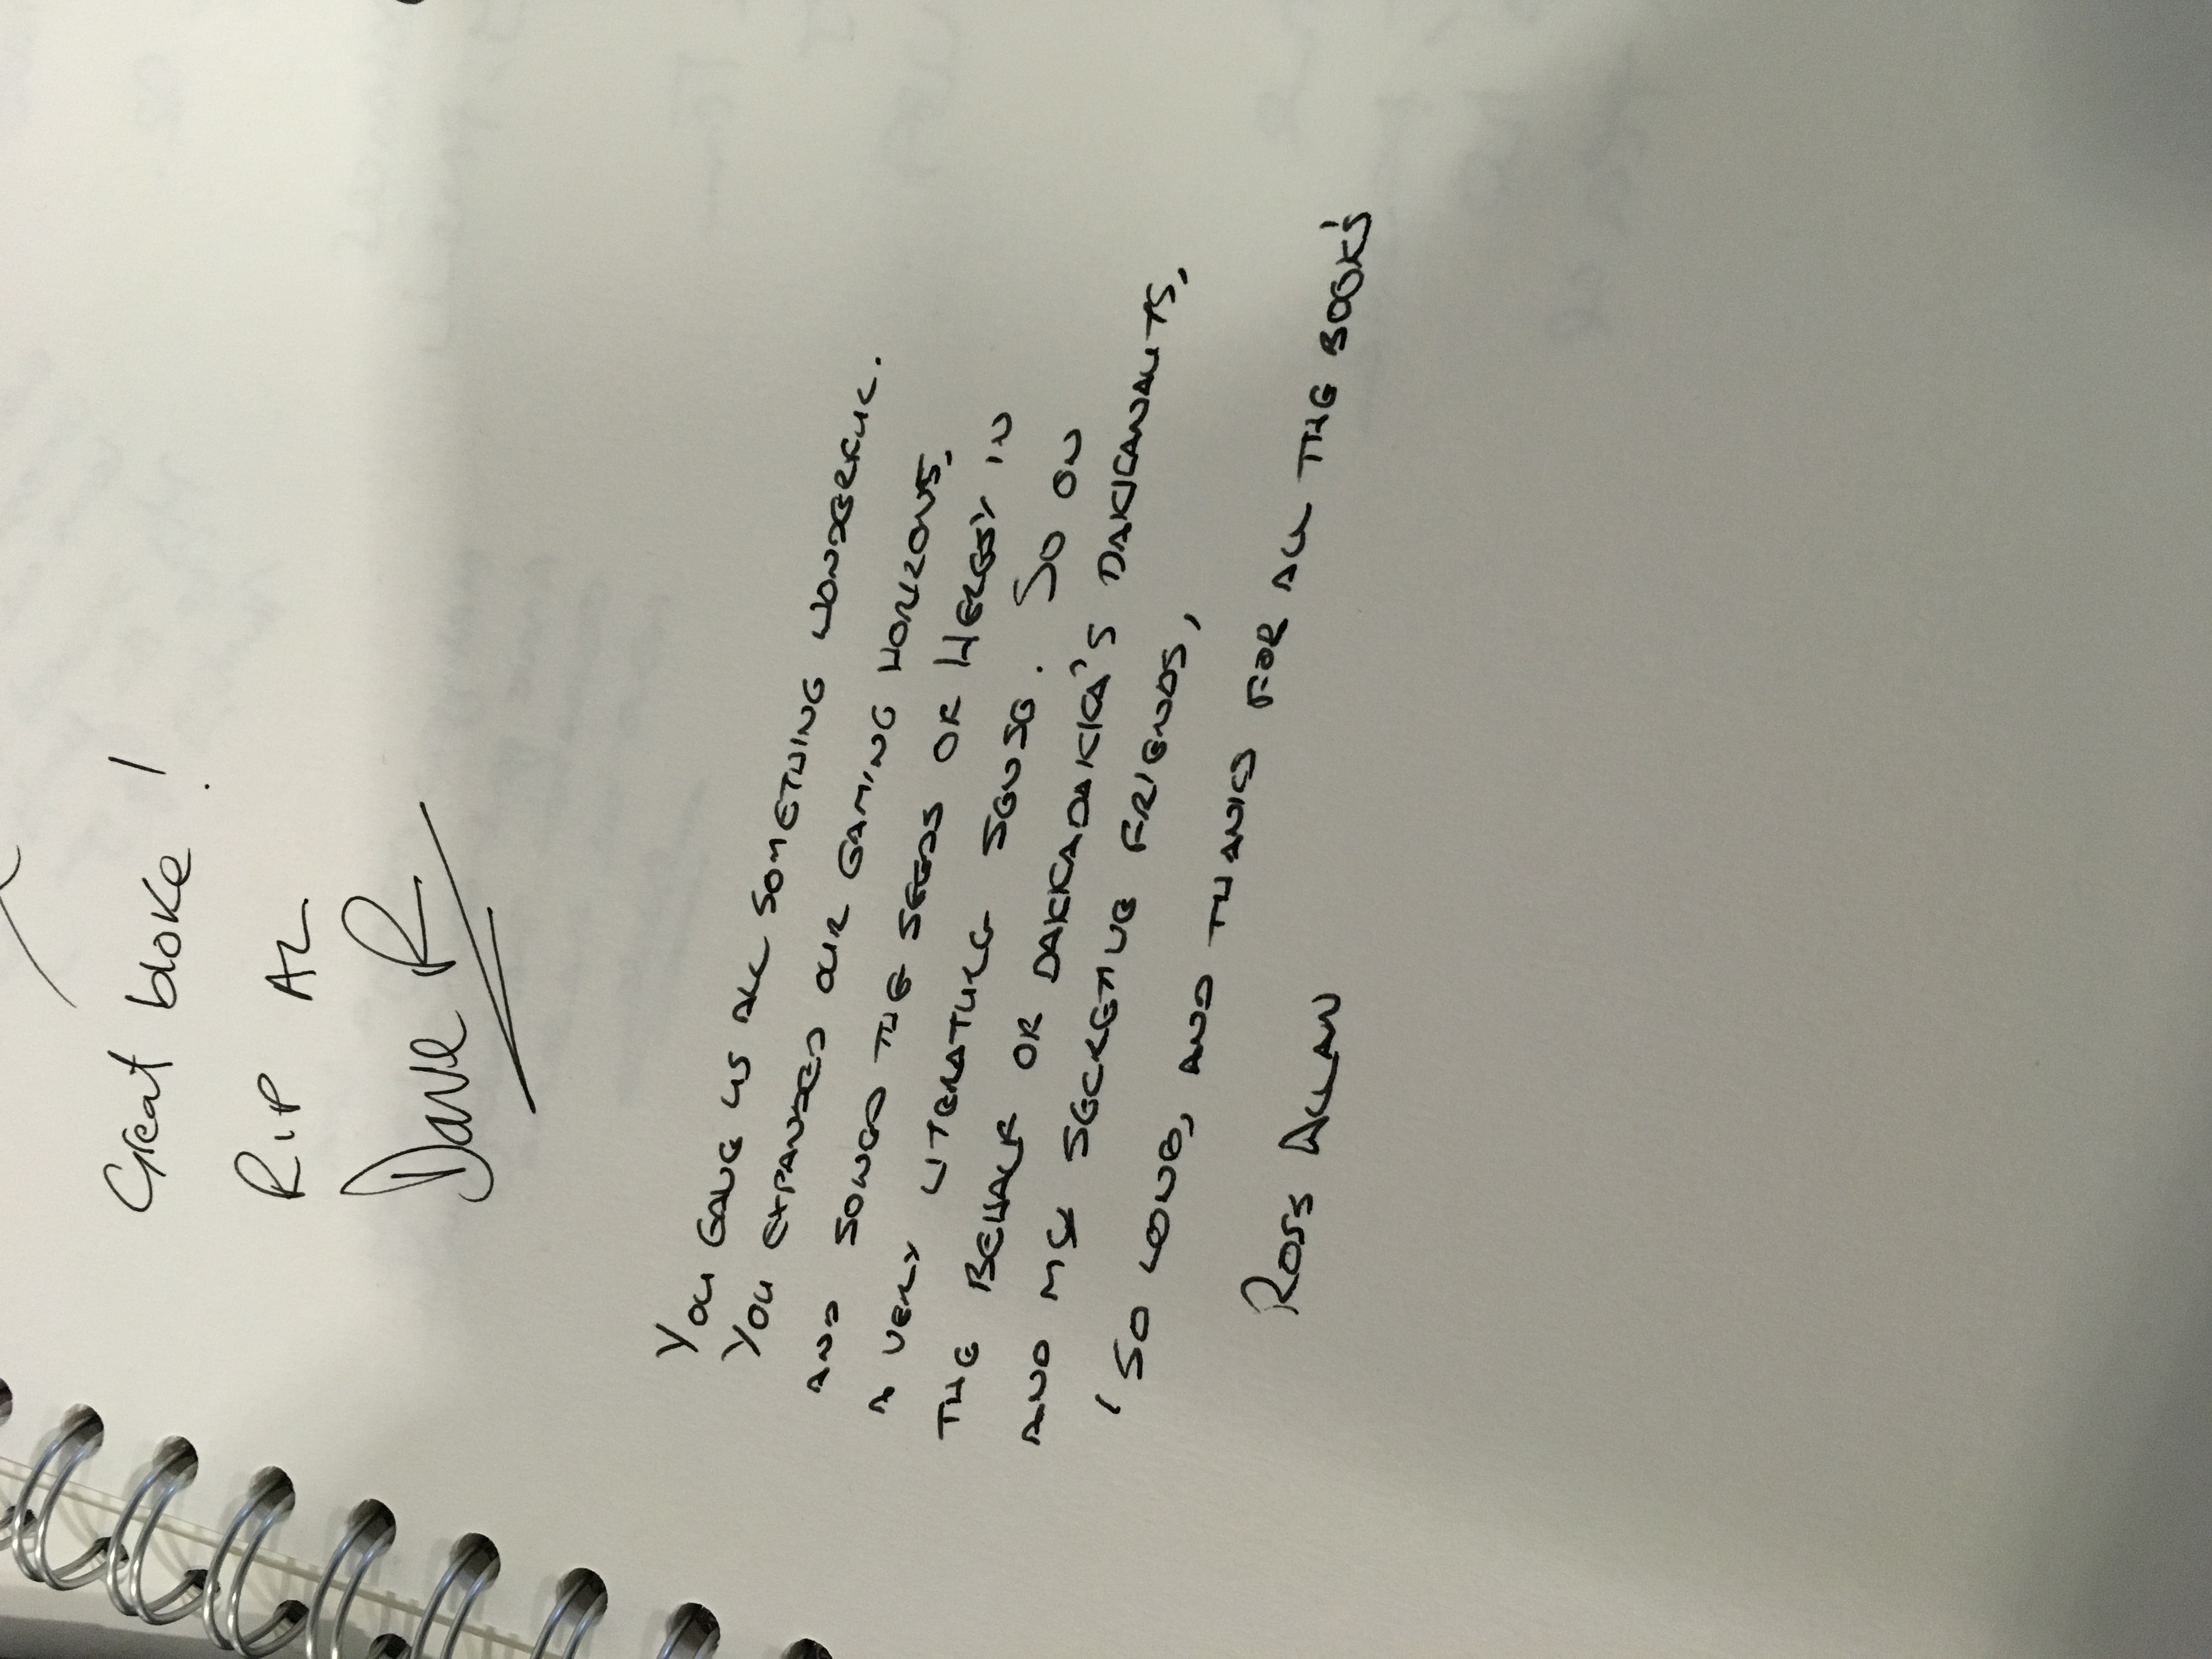 Great bloke!
RIP AL
Dave R
YOU GAVE US ALL SOMETHING WONDERFUL.
YOU EXPANDED OUR GAMING HORIZONS,
AND SOWED THE SEEDS OF HERESY IN
A VERY LITERATURE SENSE. SO ON
THE BEHALF OF DAKKADAKKA'S DAKKANAUTS,
AND MY SECRETIVE FRIENDS,
'SO LONG, AND THANKS FOR ALL THE BOOK'S
ROSS ALLAN